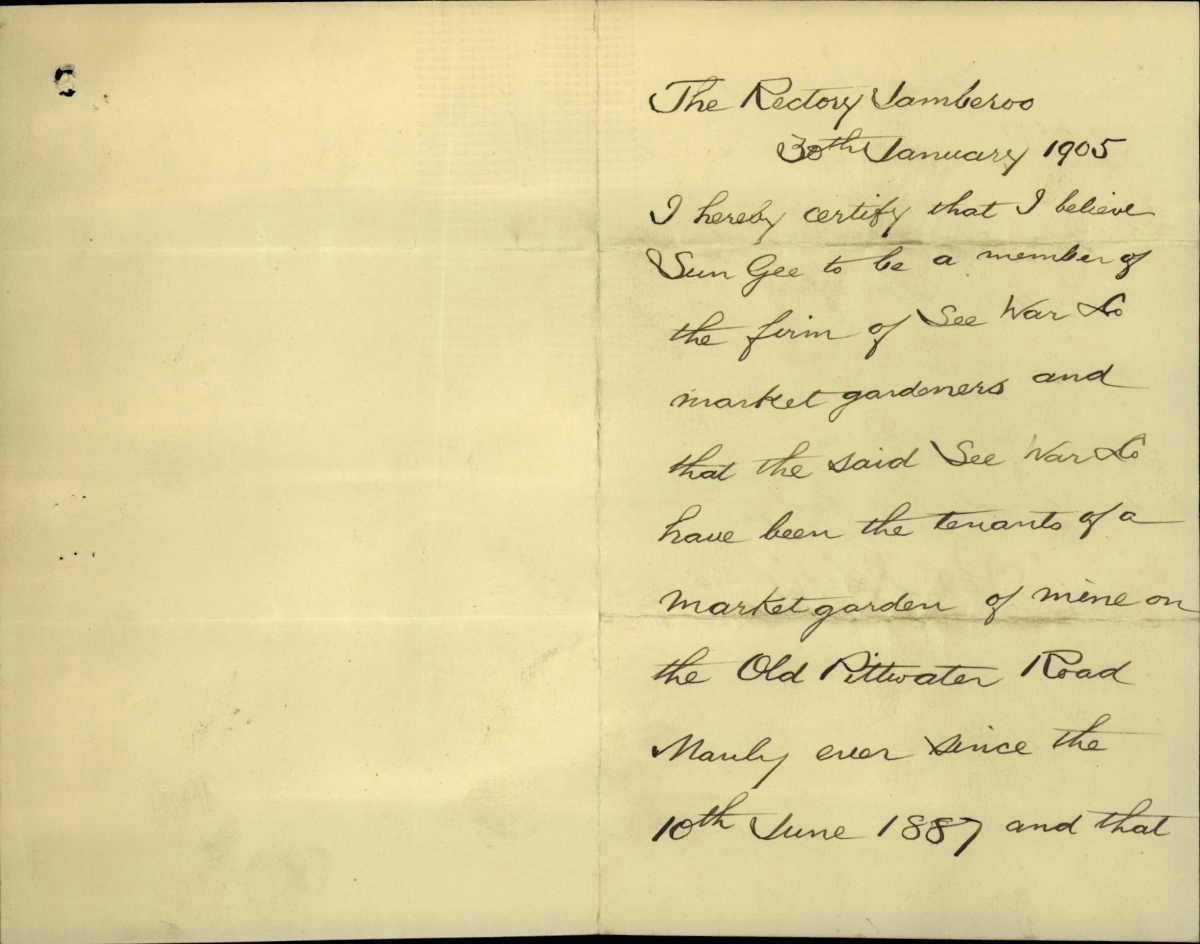 The Rectory Jamberoo
30th January 1905
I hereby certify that I believe
Sun Gee to be a member of
the firm of See War & Co
market gardeners and
that the said See War & Co
have been the tenants of a
market garden of mine on
the Old Pittwater Road
Manly ever since the
10th June 1887 and that